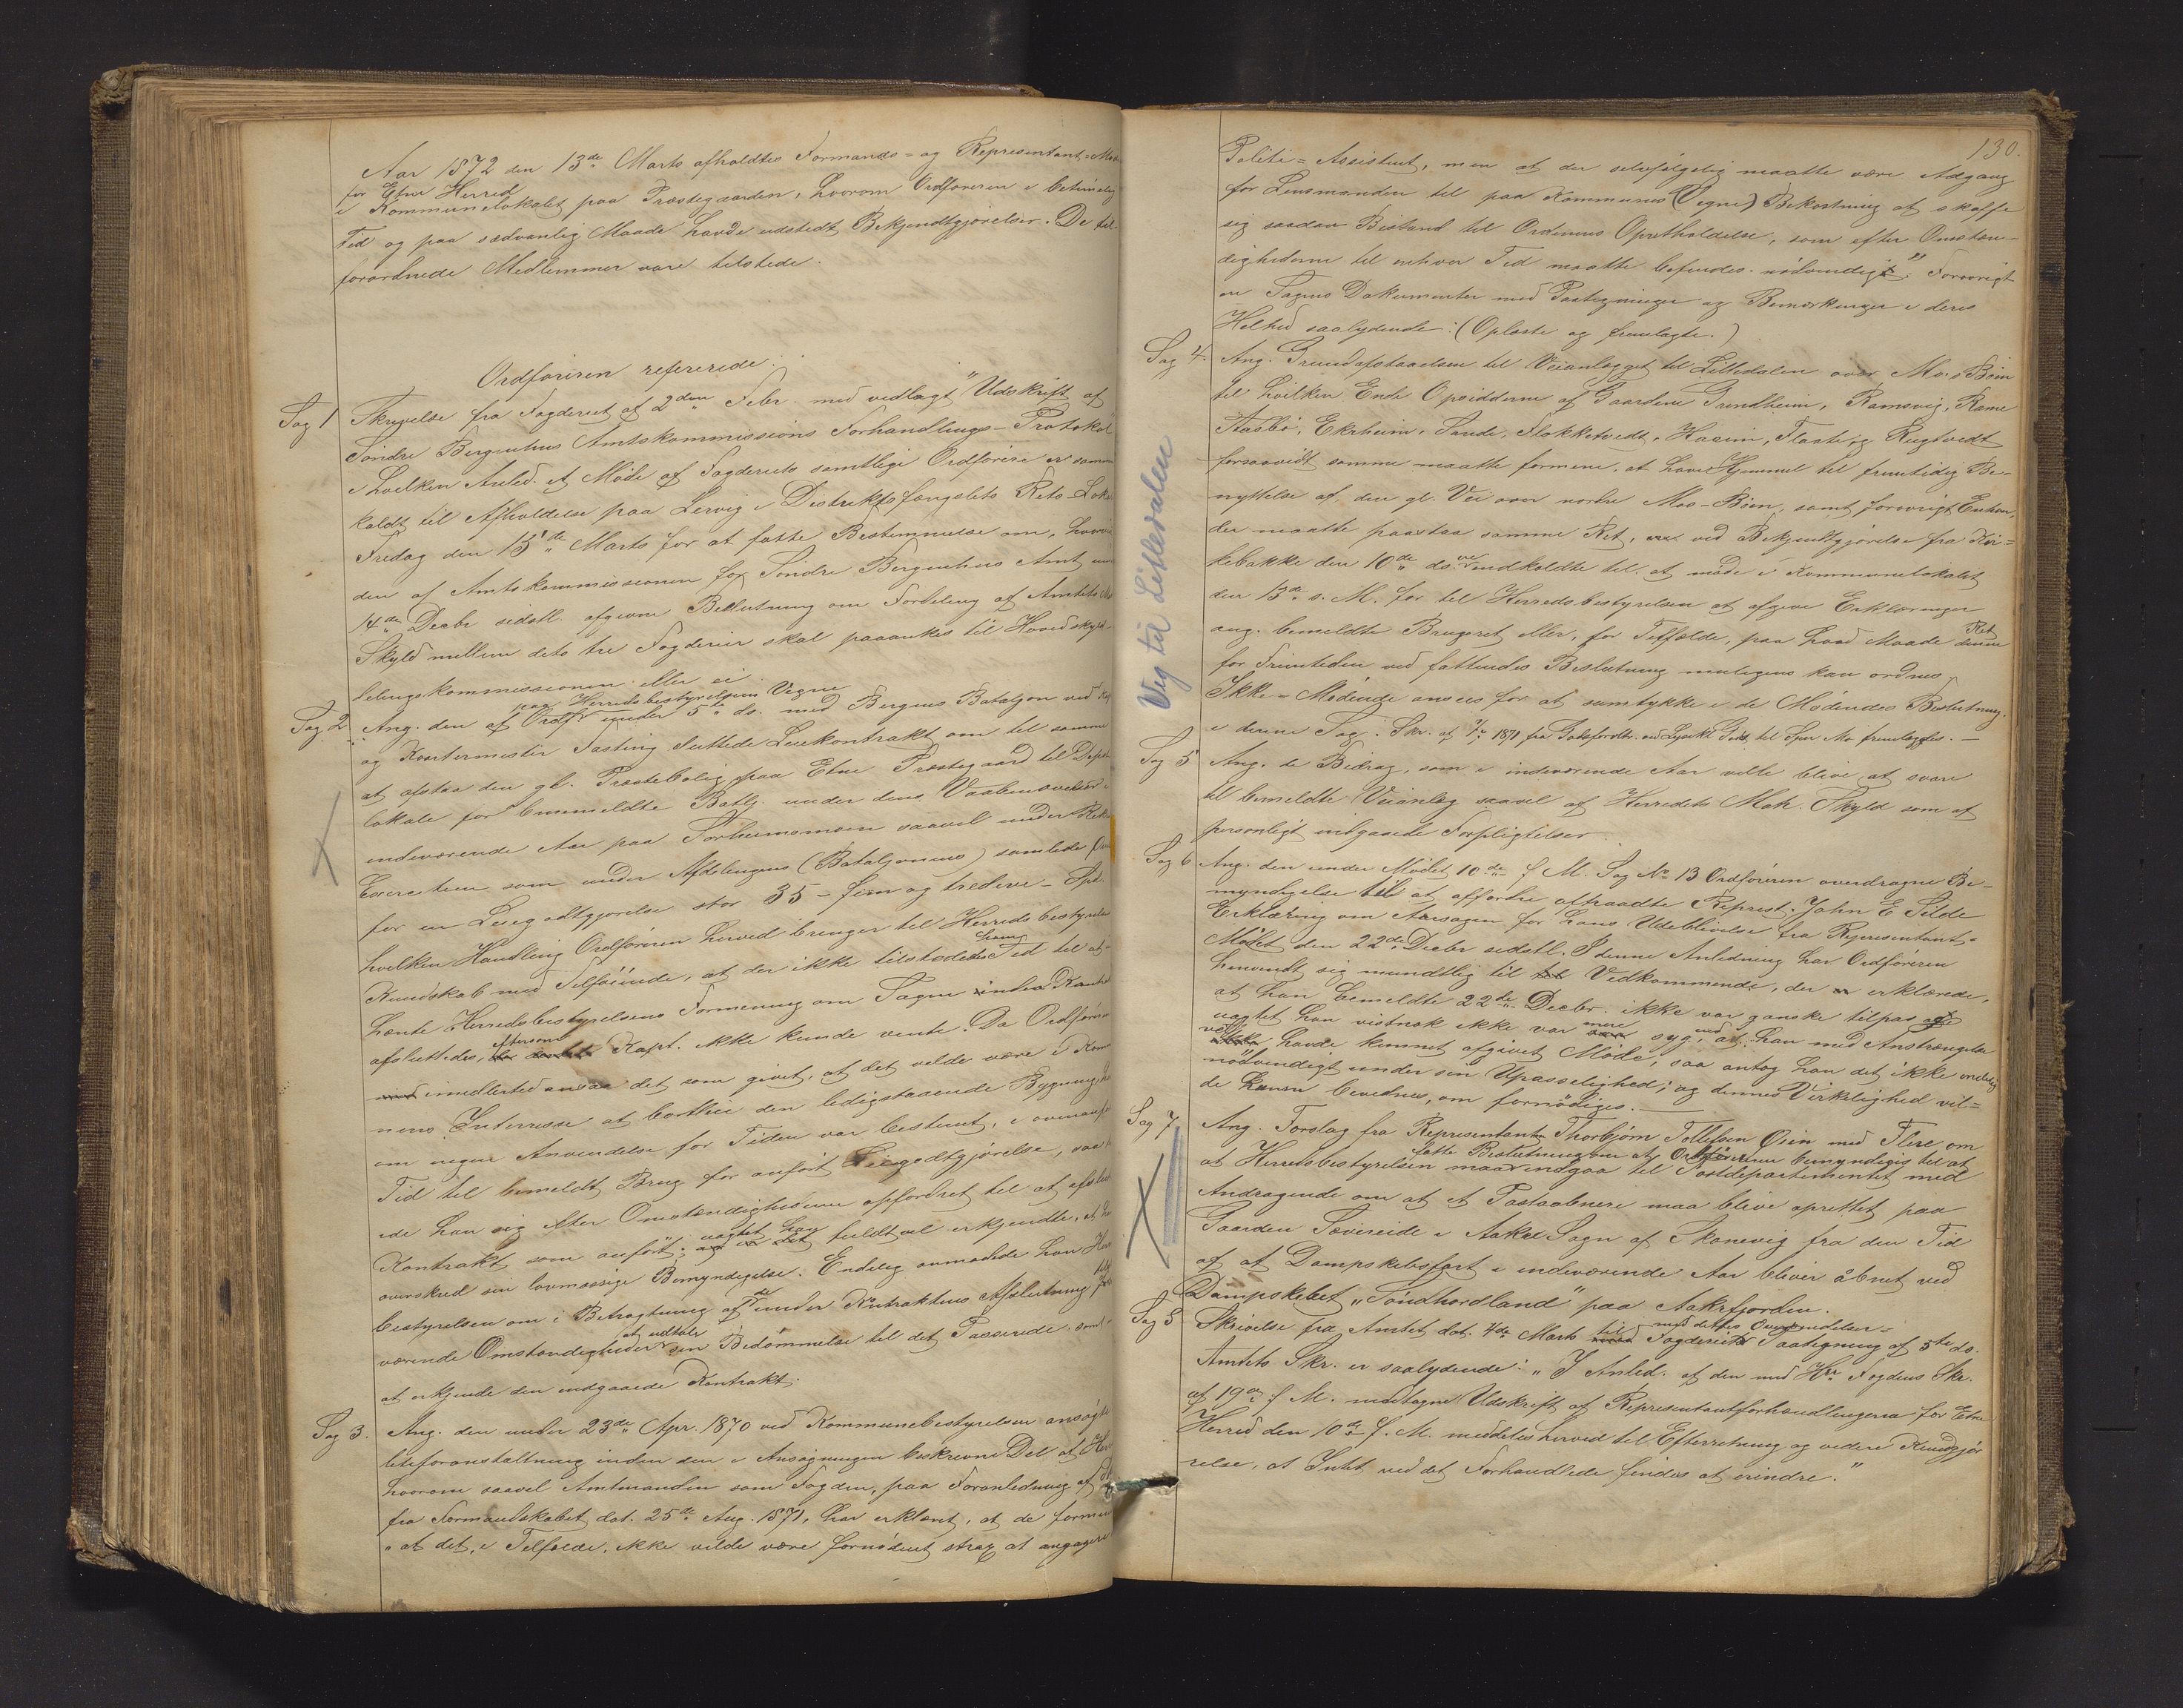 Aar 1872 den 13de Marts afholdtes Formands- og Representant-Møde
for Etne Herred
i Kommunelokalet paa Præstegaarden, hvorom Ordføreren i betimelig
Tid og paa sædvanlig Maade havde udstedt Bekjendtgjørelser. De til-
forordnede Medlemmer vare tilstede.
Ordføreren refererede:
Sag 1 Skrivelse fra Fogderiet af 2den Febr. med vedlagt Udskrift af
Søndre Bergenhus Amtskommissions Forhandlings-Protokol
i hvilken Anled. et Møde af Fogderiets samtlige Ordførere er sammen
kaldt til Afholdelse paa Lervig i Distriktsfængslets Rets-Loka
Fredag den 15de Marts for at fatte Bestemmelse om, hvorvi
den af Amtskommissionen for Søndre Bergenhus Amt under
14de Decbr sidstl. afgivne Beslutning om Fordeling af Amtets Ma
Skyld mellem dets tre Fogderier skal paaankes til Hovedskyld-
delingskommissionen eller ei
paa Herredsbestyrelsens Vegne
Sag 2 Ang. den af Ordf. under 5te ds. med Bergens Bataljon ved Kapt.
og Kvartermester Fasting sluttede Leiekontrakt om til samme
at afstaa den gl. Præstebolig paa Etne Præstegaard til Depot
lokale for bemeldte Batlj. under dens Vaabenøvelser i
indeværende Aar paa Sørheimsmoen saavel under Rekr
Exercitien som under Afdelingens (Bataljonens) samlede
for en Leiegodtgjørelse stor 35 - fem og tredive - Spd.
hvilken Handling Ordføreren herved bringer til Herredsbestyrelsens
Kundskab med Tilføiende, at der ikke tilstededes ham Tid til at
hænte Herredsbestyrelsens Formening om Sagen inden Kontrakt
afsluttedes, eftersom Kapt. ikke kunde vente. Da Ordføreren
imidlertid ansaa det som givet, at det vilde være i Kom
nens Interesse at bortleie den ledigstaaende Bygning,
om nogen Anvendelse for Tiden var bestemt, i ovenanfør
Tid til bemeldt Brug for anført Leiegodtgjørelse, saa
ede han sig efter Omstændighederne opfordret til at afslutte
Kontrakt som anført; uagtet han fuldtvel erkjendte, at ha
overskred sin lovmæssige Bemyndigelse. Endelig anmodede han Her
bestyrelsen om i Betragtning af de under Kontraktens Afslutning
værende Omstændigheder at udtale sin Bedømmelse til det Passerede, samt
at erkjende den indgaaede Kontrakt.
Sag 3. Ang. den under 23de Apr. 1870 ved Kommunebestyrelsen ansøgte
litiforanstaltning inden den i Ansøgningen beskrevne Del af Her
hvorom saavel Amtmanden som Fogden, paa Foranledning af
fra Formandskabet dat. 25de Aug. 1871, har erklæret, at de formen
"at det, i Tilfælde, ikke vilde være fornødent strax at angagere
130.
Politi-Assistent, men at der selvfølgelig maatte være Adgang
for Lensmanden til paa Kommunens (Vegne) Bekostning at skaffe
sig saadan Bistand til Ordenens Opretholdelse, som efter Omstæn-
dighederne til enhver Tid maatte befindes nødvendigt". Forøvrigt
er Sagens Dokumenter med Paategninger og Bemærkninger i deres
Helhed saalydende: (Oplæste og fremlagte.)
Sag 4. Ang. Grundafstaaelsen til Veianlægget til Litledalen over Mo-Bøen
til hvilken Ende Opsidderne af Gaardene Grindheim, Ramsvig, Rame
Aasbø, Ekrheim, Sande, Flokketvedt, Haaim, Flaate, og Rugtvedt
forsaavidt samme maatte formene, at have Hjemmel til fremtidig Be-
nyttelse af den gl. Vei over nordre Moe-Bøen, samt forøvrigt Enhver,
der maatte paastaa samme Ret, ved Bekjendtgjørelse fra Kir-
kebakke den 10de ds. vare indkaldte til at møde i Kommunelokalet
den 13de s. M. for til Herredsbestyrelsen at afgive Erklæringer
ang. bemeldte Brugsret eller, for Tilfælde, paa hvad Maade denne Ret
for Fremtiden ved fattendes Beslutning muligens kan ordnes.
Ikke-Mødende ansees for at samtykke i de Mødendes Beslutning
i denne Sag. Skr. af 7/7 1871 fra Godsforvlt. ved Lyse Gods til Sjur Mo fremlagdes. —
Veg til Litledalen
Sag 5 Ang. de Bidrag, som i indeværende Aar ville blive at svare
til bemeldte Veianlæg saavel af Herredets Matr. Skyld som af
personligt indgaaede Forpligtelser.
Sag 6 Ang. den under Mødet 10de f. M. Sag No 13 Ordføreren overdragne Be-
myndigelse til at affordre aftraadte Represt. John E Silde
Erklæring om Aarsagen for hans Udeblivelse fra Representant-
Mødet den 22de Decbr sidstl. I denne Anledning har Ordføreren
henvendt sig mundtlig til Vedkommende, der erklærede,
at han bemeldte 22de Decbr. ikke var ganske tilpas og
uagtet han vistnok ikke var mere syg, end at han med Anstrengelse
vel havde kunnet afgivet Møde, saa antog han det ikke endelig
nødvendigt under sin Upasselighed; og dennes Virkelighed vil-
de kunne bevidnes, om fornødiges. —
Sag 7 Ang. Forslag fra Representanten Thorbjørn Tollefsen Øien med Flere om
at Herredsbestyrelsen maa fatte Beslutning om at Ordføreren bemyndiges til at indgaa til Postdepartementet med
Andragende om at et Postaabneri maa blive oprettet paa
Gaarden Sævereide i Aakre Sogn af Skonevig fra den Tid
af at Dampskibsfart i indeværende Aar bliver åbnet ved
Dampskibet "Søndhordland" paa Aakrefjorden.
Sag 8 Skrivelse fra Amtet dat. 4de Marts til Fogderiet med dettes Oversendelses-Paategning af 5te ds.
Amtets Skr. er saalydende: "I Anled. af den med Hr. Fogdens Skr.
af 19de f. M. modtagne Udskrift af Representantforhandlingerne for Etne
Herred den 10de f. M. meddeles herved til Efterretning og videre Kundgjø-
relse, at Intet ved det Forhandlede findes at erindre."